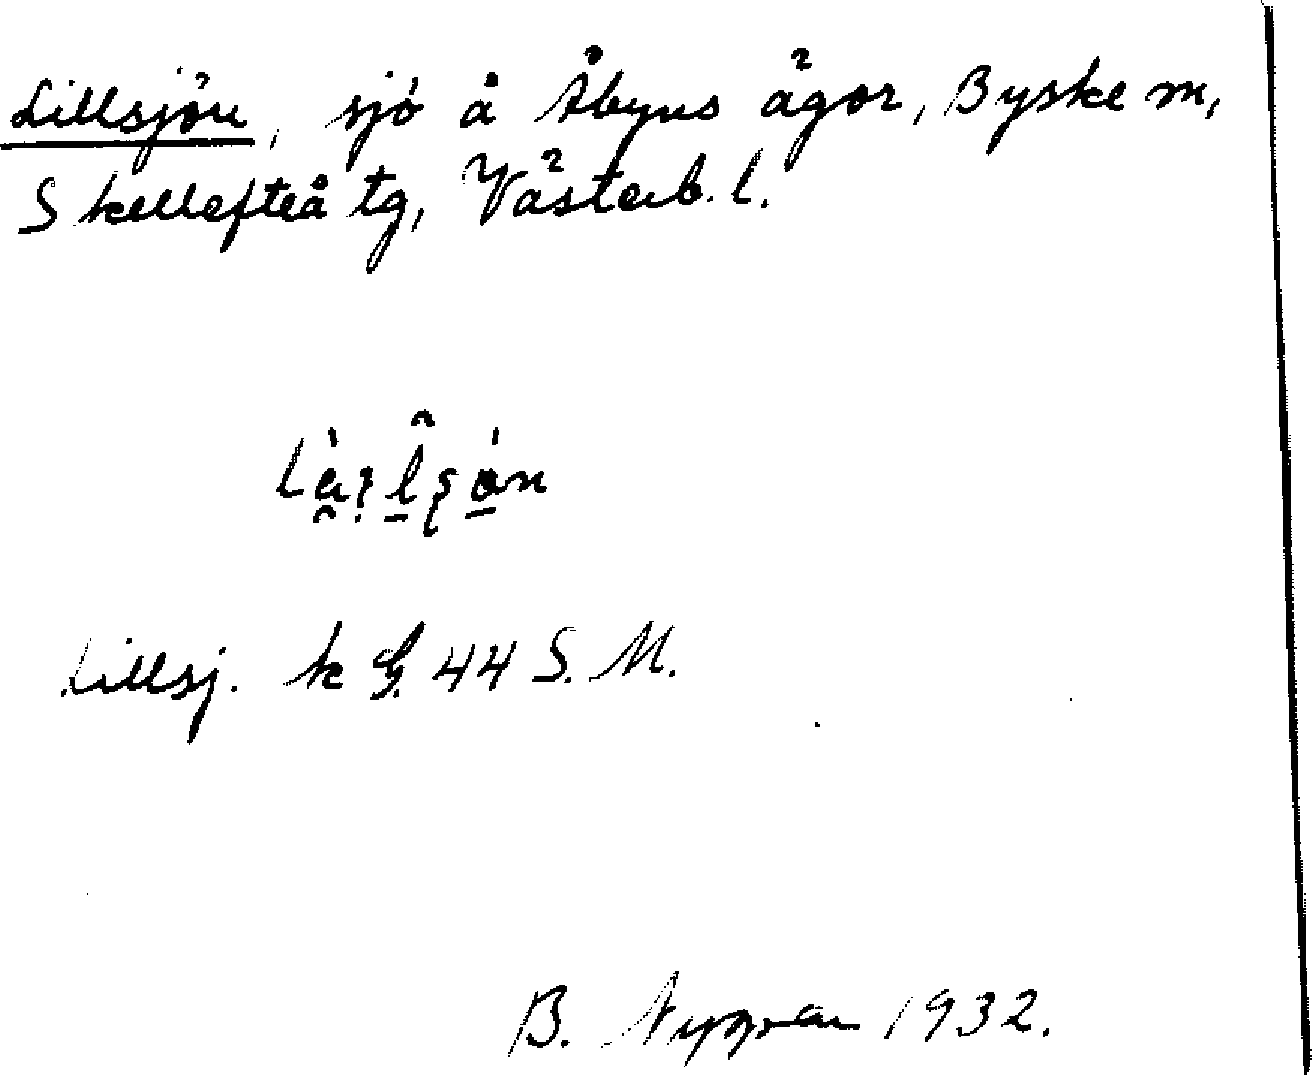 Lillsjön, sjö å Åbyns ägor, Byske sn,
Skellefteå tg, Västerb. l.
Lillsj. k G. 44 S. M.
B. Nygren 1932.